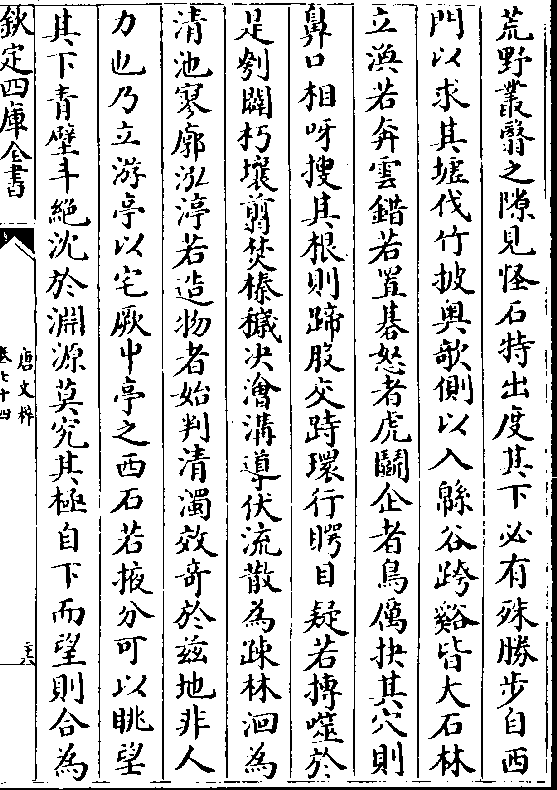 荒野叢翳之隙見怪石特出度其下必有殊勝步自西
門以求其墟伐竹披奥欹側以入緜谷跨谿皆大石林
立渙若奔雲錯若置碁怒者虎鬭企者鳥厲抉其穴則
鼻口相呀搜其根則蹄股交跱環行愕目疑若搏噬於
是刳闢朽壤翦焚榛穢决澮溝導伏流散為疎林洄為
清池寥廓泓渟若造物者始判清濁效奇於兹地非人
力也乃立游亭以宅厥中亭之西石若掖分可以眺望
其下青壁斗絶沈於淵源莫究其極自下而望則合為
欽定四庫全書
唐文粹
卷七十四